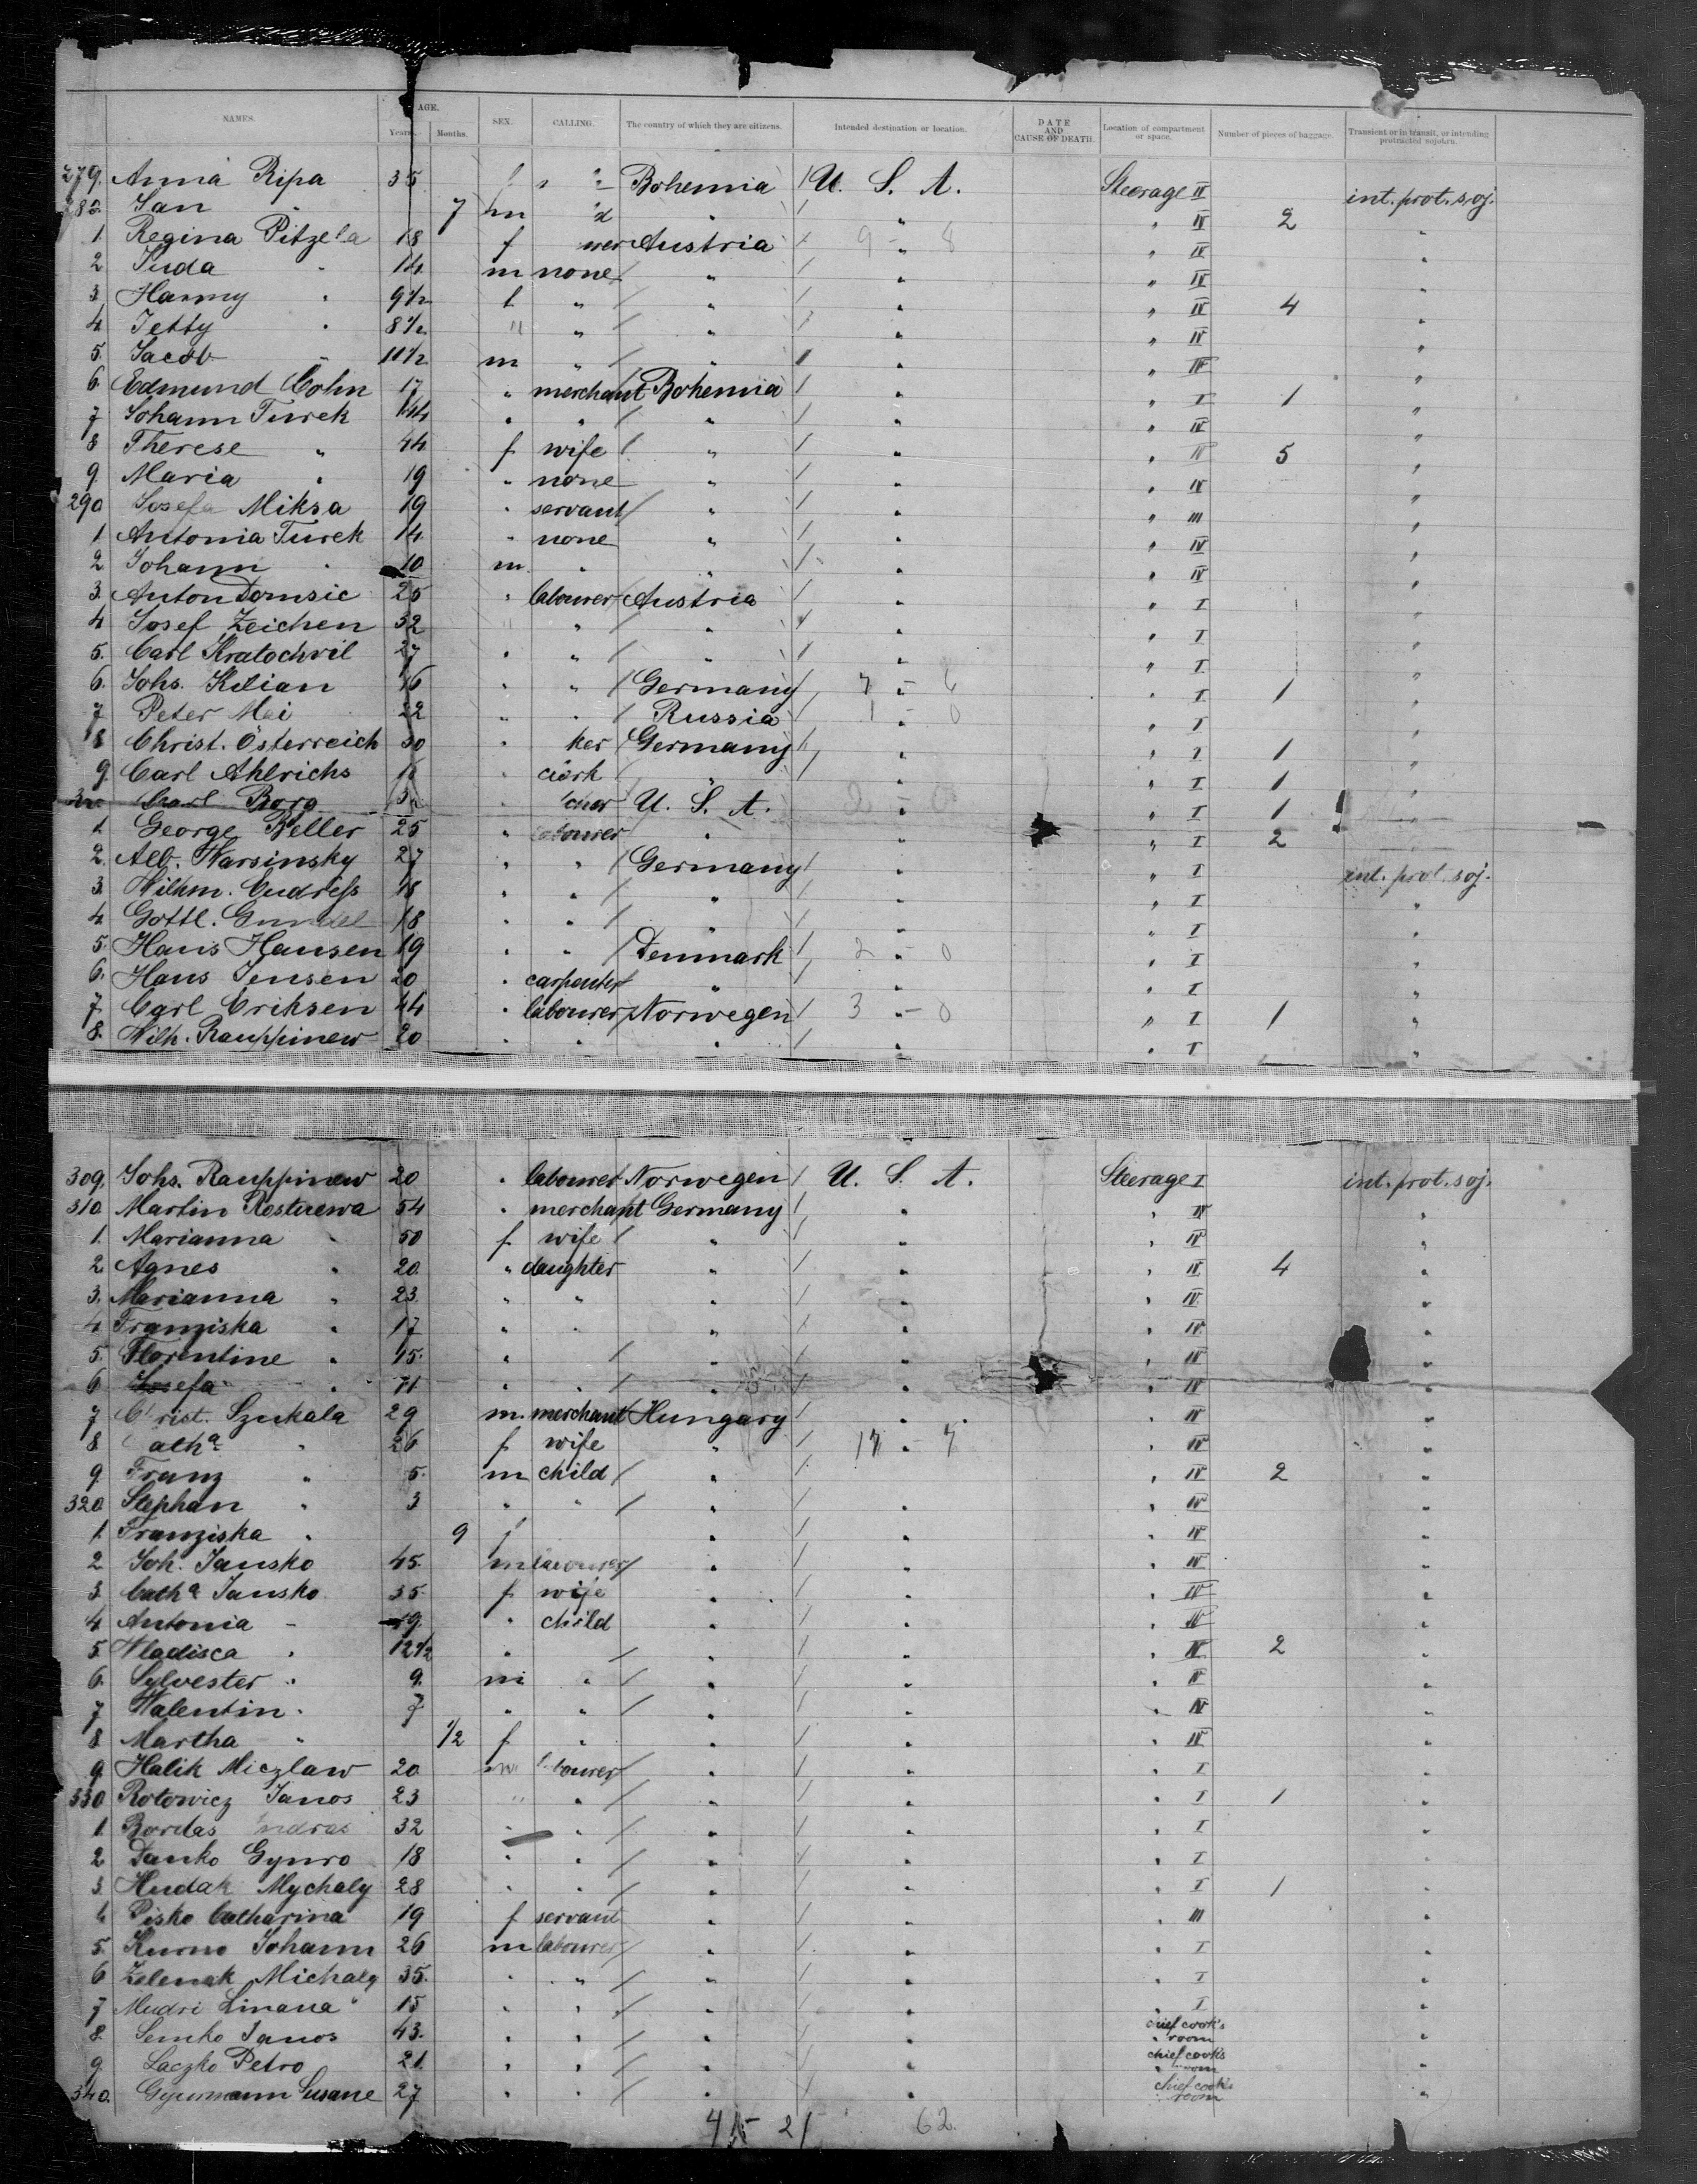 NAMES. AGE. Years. Months. SEX. CALLING. The country of which they are citizens. Intended destination or location. DATE AND CAUSE OF DEATH. Location of compartment or space. Number of pieces of baggage. Transient or in transit, or intending protracted sojourn.
279. Anna Ripa 35 f " Bohemia / U. S. A. Steerage IV int. prot. soj.
Jan " 7 m " / " " IV 2 "
1. Regina Pitzela 18 f Austria / 9 - 8 " IV "
2 Juda " 14 m none / " / " " IV "
3 Hanny " 9 1/2 f " / " / " " IV 4 "
4 Jetty " 8 1/2 " " / " / " " IV "
5. Jacob " 11 1/2 m " / " / " " IV "
6. Edmund Cohn 17 " merchant Bohemia / " " I 1 "
7 Johann Turek 44 " " / " / " " IV "
8 Therese " 44 f wife / " / " " IV 5 "
9 Maria " 19 " none " / " " IV "
290 Josefa Miksa 19 " servant / " / " " III "
1 Antonia Turek 14 " none " / " " IV "
2 Johann " 10 m " " / " " IV "
3. Anton Domsic 25 " labourer / Austria / " " I "
4 Josef Zeichen 32 " " / " / " " I "
5. Carl Kratochvil 27 " " / " / " " I "
6. Johs. Kilian 16 " " / Germany / 7 - 6 " I 1 "
7 Peter Mai 22 " " / Russia / 1 - 0 " I "
8 Christ. Österreich 30 " ker / Germany / " " I 1 "
9 Carl Ahlrichs 18 " clerk / " / " " I 1 "
Carl Borg " U. S. A. " " I 1
1. George Beller 25 " labourer " " " I 2
2. Alb. Warsinsky 27 " " / Germany / " " I int. prot. soj.
3. Wilhm. Endress 18 " " / " / " " I "
4 Gottl. 18 " " / " / " " I "
5. Hans Hansen 19 " " / Denmark / 2 - 0 " I "
6. Hans Jensen 20 " carpenter / " / " " I "
7 Carl Eriksen 44 " labourer / Norwegen / 3 - 0 " I 1 "
8. Wilh. Rauppinew 20 " " " / " " I "
309. Johs. Rauppinew 20 " labourer Norwegen / U. S. A. Steerage I int. prot. soj.
310. Martin Rosturewa 54 " merchant Germany / " " IV "
1. Marianna " 50 f wife / " / " " IV "
2 Agnes " 20 " daughter " / " " IV 4 "
3. Marianna " 23. " " " / " " IV "
4 Franziska " 17 " " " / " " IV "
5. Florentine " 15. " / " / " " IV "
6 Josefa " 11 " " / " / " " IV "
7 Christ. Szukala 29 m. merchant / Hungary / " " IV "
8 Catha " 26 f wife " / 17 - 7 " IV "
9 Franz " 5. m child / " / " " IV 2 "
320. Stephan " 3 " " / " / " " IV "
1. Franziska " 9 f " / " " IV "
2 Joh. Jansko 45. m labourer / " / " " IV "
3. Catha Jansko 35. f wife " / " " IV "
4 Antonia - 19. " child " / " " IV "
5. Wladisca " 12 1/2 " / " / " " IV 2 "
6. Sylvester " 9. m " / " / " " IV "
7 Walentin " 7 " " / " / " " IV "
8 Martha " 1/2 f " " / " " IV "
9 Halik Miczlaw 20 m labourer / " / " " I "
330 Rotowicz Janos 23 " " / " / " " I 1 "
1. Bordas Andras 32 " " / " / " " I "
2 Danko Gynro 18 " " / " / " " I "
3. Hudak Mychaly 28 " " / " / " " I 1 "
4. Pisko Catharina 19 f servant " / " " III "
5. Kurno Johann 26 m labourer / " / " " I "
6 Zelenak Michaly 35. " " / " / " " I "
7 Mudri Linana 15 " " / " / " " I "
8. Semko Janos 43. " " / " / " chief cook's " room "
9 Laczko Petro 21 " " / " / " chief cook's " room "
340. Gyurmann Susane 27 " " / " / " chief cook's room "
45 21 62